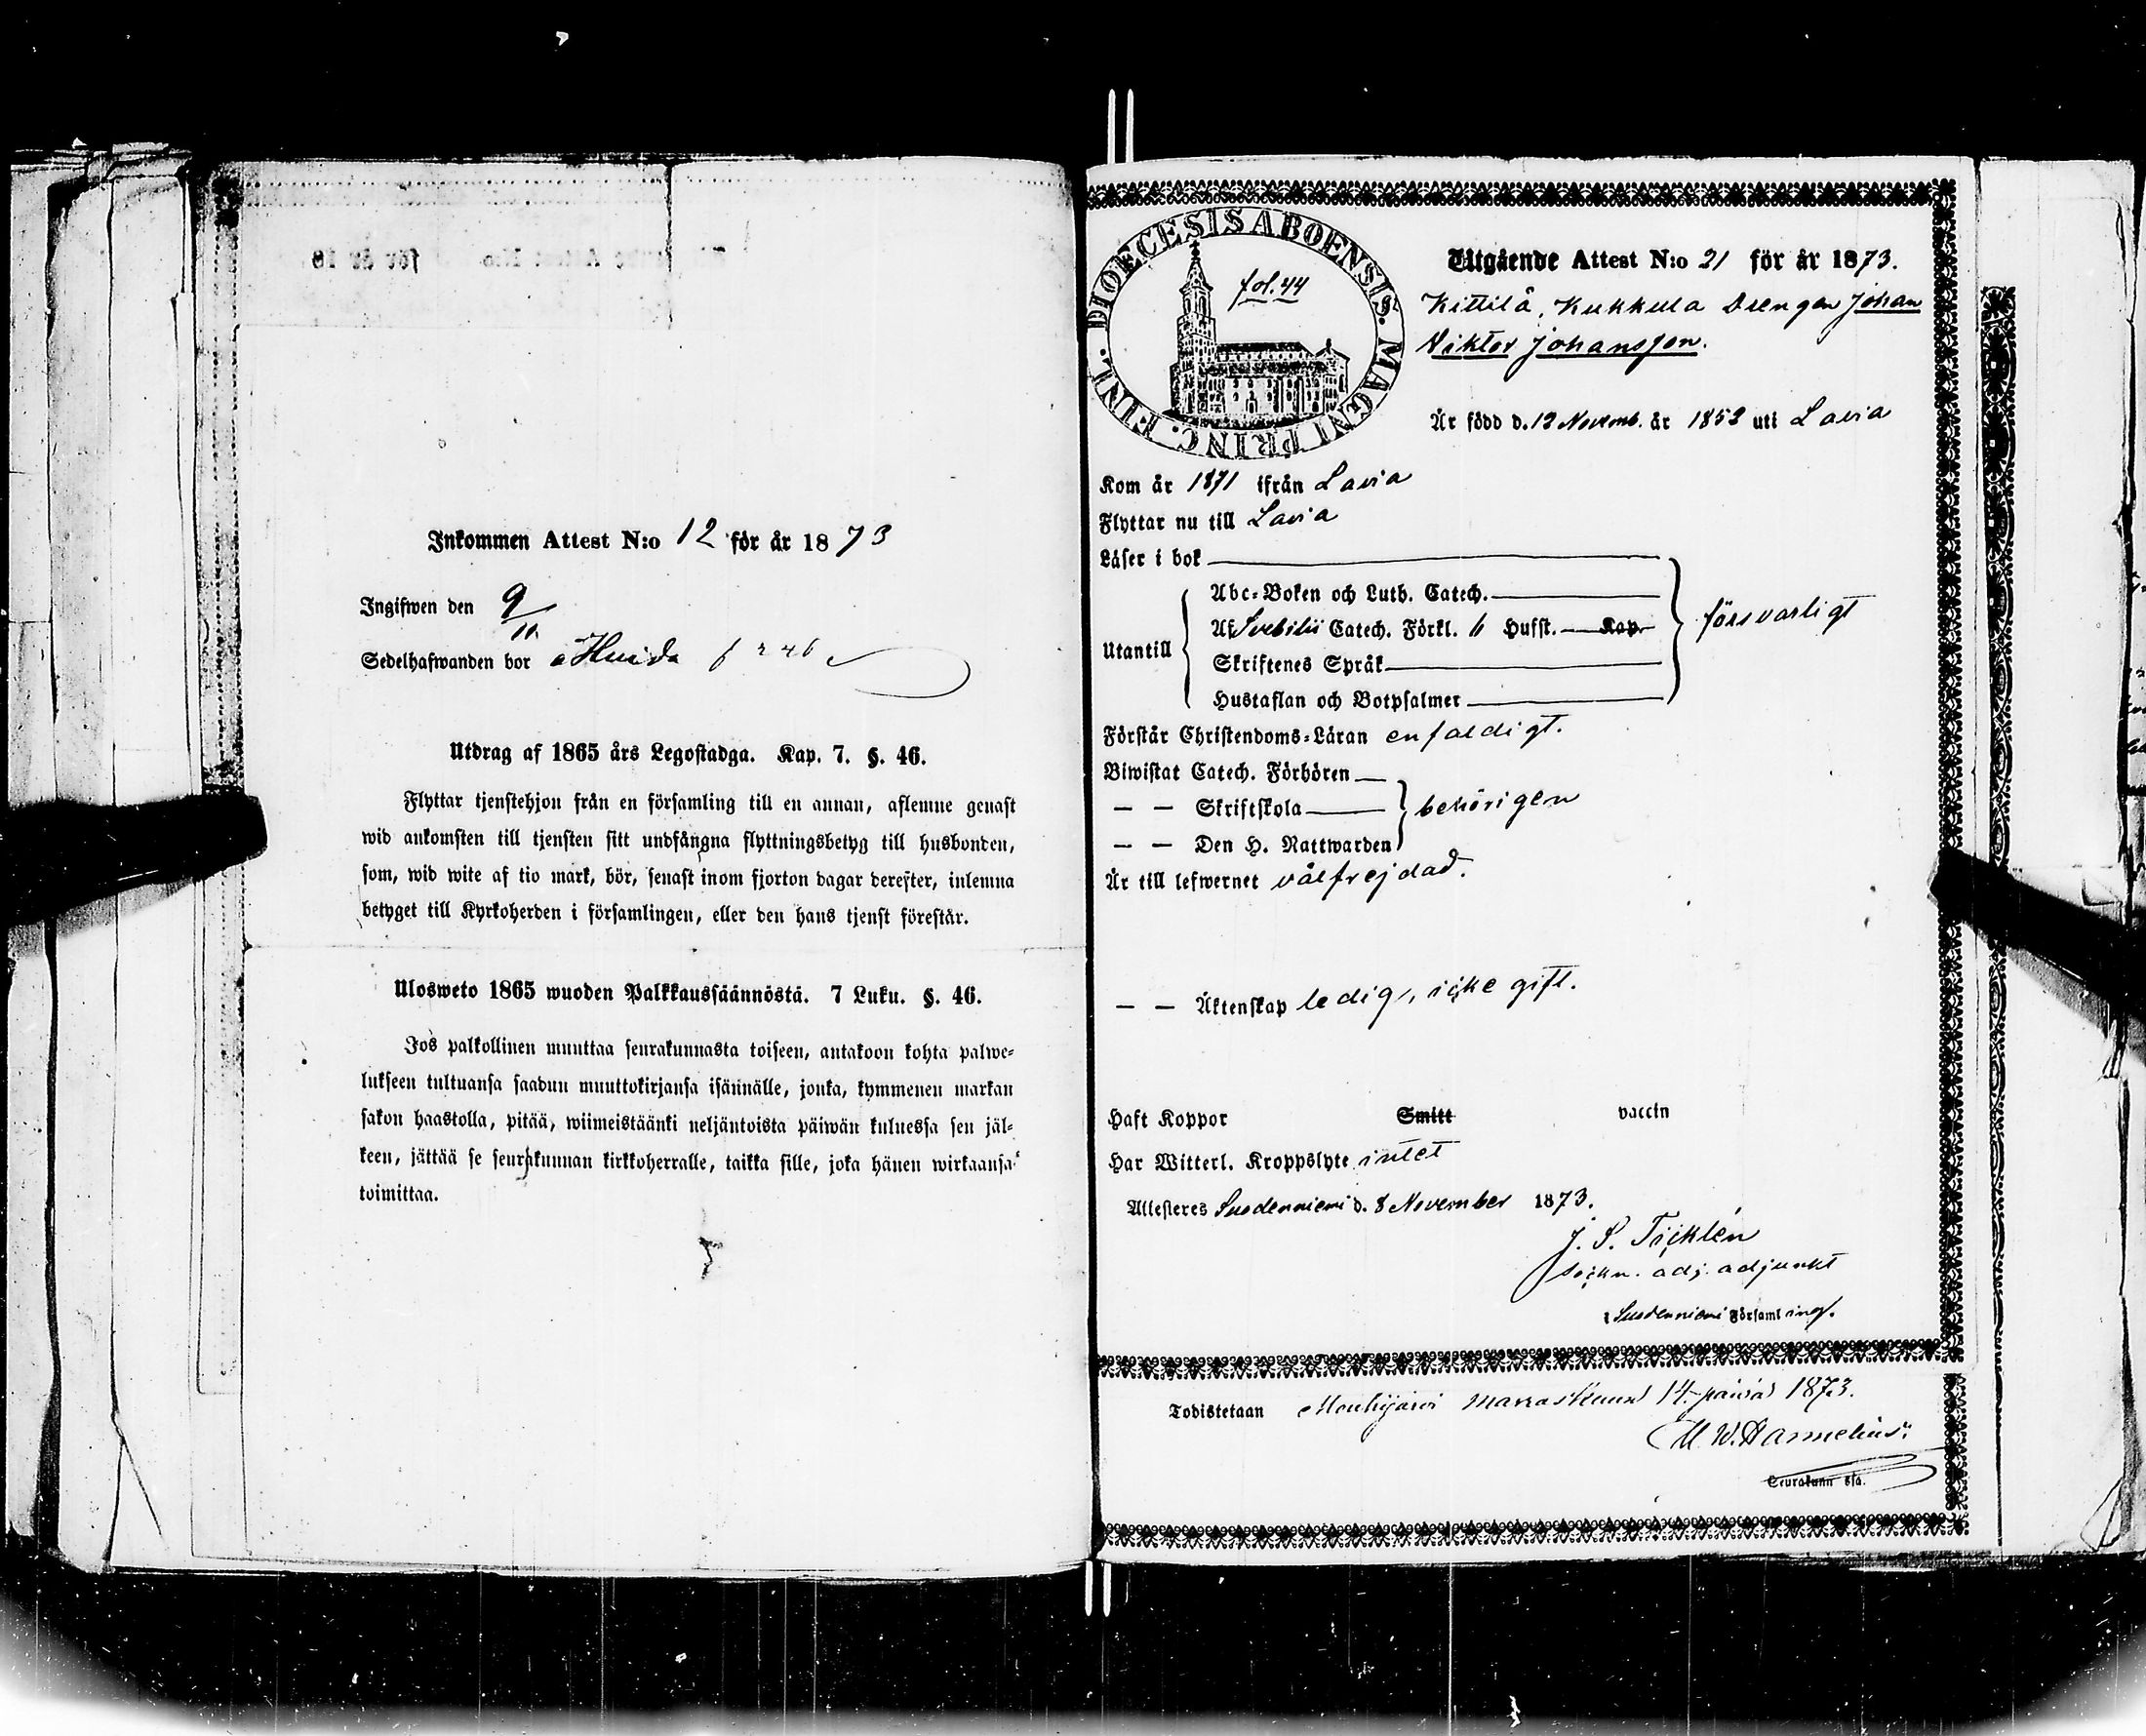 Inkommen Attest N:o 12 för år 1873
Ingifwen den 9/11
Sedelhafwanden bor å Huida f 246
Utdrag af 1865 års Legostadga. Kap. 7. §. 46.
Flyttar tjenstehjon från en församling till en annan, aflemne genast
wid ankomsten till tjensten sitt undfångna flyttningsbetyg till husbonden,
som, wid wite af tio mark, bör, senast inom fjorton dagar derefter, inlemna
betyget till Kyrkoherden i församlingen, eller den hans tjenst förestår.
Ulosweto 1865 wuoden Palkkaussäännöstä. 7 Luku. §. 46.
Jos palkollinen muuttaa seurakunnasta toiseen, antakoon kohta palwe-
lukseen tultuansa saadun muuttokirjansa isännälle, jonka, kymmenen markan
sakon haastolla, pitää, wiimeistäänki neljäntoista päiwän kuluessa sen jäl-
keen, jättää se seurakunnan kirkkoherralle, taikka sille, joka hänen wirkaansa
toimittaa.
DIOECESIS ABOENSIS. MAGNI PRINC. FINL.
fol. 44
Utgående Attest N:o 21 för år 1873.
Kittilä, Kukkula Drengen Johan
Viktor Johansson.
Är född d. 12 Novemb. år 1852 uti Lavia
Kom år 1871 ifrån Lavia
Flyttar nu till Lavia
Läser i bok
Utantill
Abc-Boken och Luth. Catech.
Af Svebilii Catech. Förkl. 6 Hufst. Kap.
Skriftenes Språk
Hustaflan och Botpsalmer
försvarligt
Förstår Christendoms-Läran enfaldigt.
Biwistat Catech. Förhören
— — Skriftskola
— — Den H. Nattwarden
behörigen
Är till lefwernet välfrejdad.
— — Äktenskap ledig, icke gift.
Haft Koppor Smitt vaccin
Har Witterl. Kroppslyte intet
Attesteres Suodenniemi d. 8 November 1873.
J. S. Täcklén
sockn. adj. adjunkt
i Suodenniemi Församling.
Todistetaan Mouhijärvi marraskuun 14. päivä 1873.
M. W. Hannelius.
Seurakunn ssa.